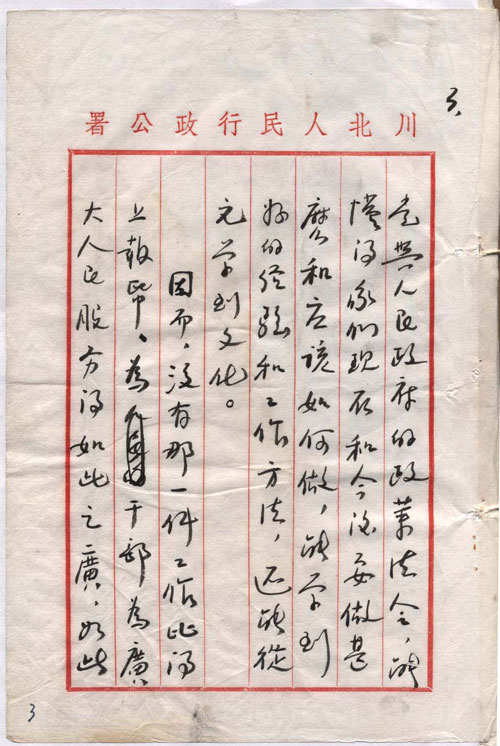 3.
川北人民行政公署
党與人民政府的政策法令，能
懂得我们现在和今后要做甚
麽和应该如何做，能学到
好的经验和工作方法，还能從
它学到文化。
因而，没有那一件工作比得
上報帋、為干部為廣
大人民服务得如此之廣，如此
3